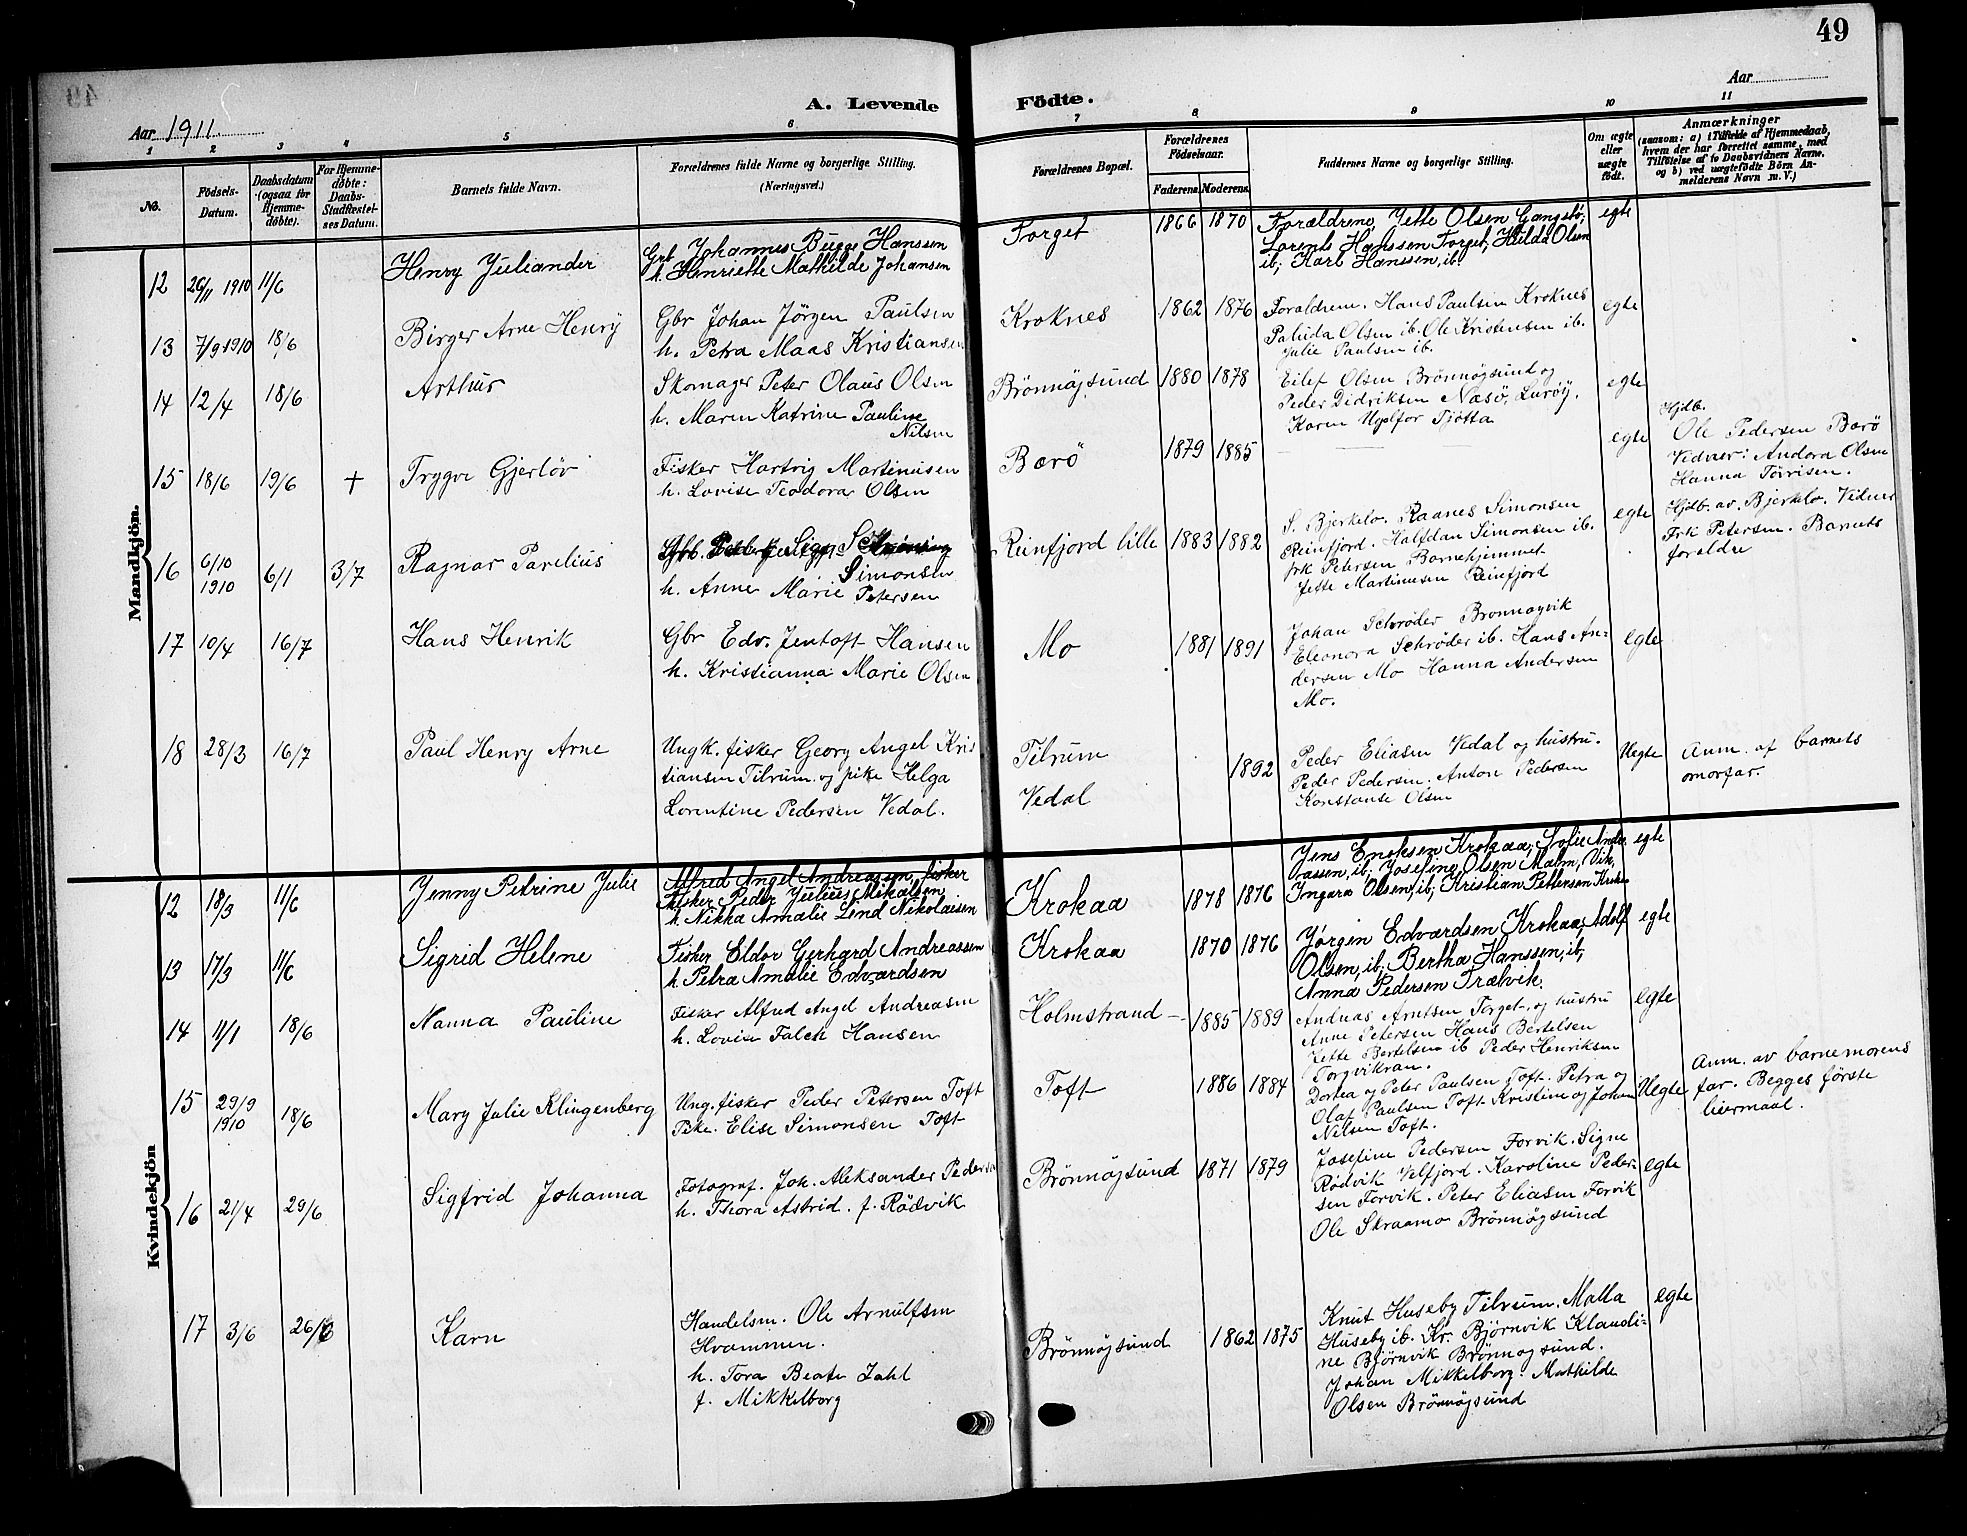 49
Aar 1911
A. Levende Födte.
Aar
1 2 3 4 5 6 7 8 9 10 11
No.
Födsels-Datum.
Daabsdatum (ogsaa for Hjemme-døbte).
For Hjemme-døbte: Daabs-Stadfæstel-ses Datum.
Barnets fulde Navn.
Forældrenes fulde Navne og borgerlige Stilling.
(Næringsvei.)
Forældrenes Bopæl.
Forældrenes Födselsaar.
Faderens. Moderens.
Faddernes Navne og borgerlige Stilling.
Om ægte eller uægte födt.
Anmærkninger
(saasom: a) i Tilfælde af Hjemmedaab,
hvem der har forrettet samme, med
Tilföielse af to Daabsvidners Navne,
og b) ved uægtefödte Börn An-
melderens Navn m. V.)
Mandkjön.
12 26/11 1910 11/6 Henry Juliander
Grb Johannes Bugge Hanssen
h. Henriette Mathilde Johansen
Torget 1866 1870
Forældrene, Jette Olsen Gangstø,
Lorents Hanssen Torget, Hilda Olsen
ib, Karl Hanssen, ib.
egte
13 7/9 1910 18/6 Birger Arne Henry
Gbr Johan Jörgen Paulsen
h. Petra Maas Kristiansen
Kroknes 1862 1876
Foraldrene. Hans Paulsen Kroknes
Palida Olsen ib. Ole Kristensen ib.
Julie Paulsen ib.
egte
14 12/4 18/6 Arthur
Skomager Peter Olaus Olsen
h. Maren Katrine Pauline
Nilsen
Brönnöjsund 1880 1878
Eilef Olsen Brönnögsund og
Peder Didriksen Næsö, Luröy.
Karen Tjötta
egte
15 18/6 19/6 + Trygve Gjerlöv
Fisker Hartvig Martinusen
h. Lovise Teodora Olsen
Barö 1879 1885
egte
Hjdb.
Ole Pedersen Barö
Vidner: Andora Olsen
Hanna Torrisen.
16 6/10 1910 6/1 3/7 Ragnar Parelius
Simonsen
h. Anne Marie Petersen
Reinfjord lille 1883 1882
S. Bjerkelo. Raanes Simonsen
Reinfjord. Halfdan Simonsen ib.
frk Petersen Barnehjemmet
Jette Martinusen Reinfjord
egte
Hjdb. av. Bjerkelo. Vidner
Frk Petersen. Barnets
foraldre
17 10/4 16/7 Hans Henrik
Gbr Edv. Jentoft Hansen
h. Kristianna Marie Olsen
Mo 1881 1891
Johan Schröder Brönnøyvik
Eleonora Schröder ib. Hans An-
dersen Mo Hanna Andersen
Mo.
egte
18 28/3 16/7 Paul Henry Arne
Ungk. fisker Georg Angel Kris
tiansen Tilrum og pike Helga
Lorentine Pedersen Vedal.
Tilrum
Vedal
1892
Peder Eliasen Vedal og hustru.
Peder Pedersen. Anton Pedersen
Konstanse Olsen
Uegte
Anm. af barnets
morfar.
Kvindekjön
12 18/3 11/6 Jenny Petrine Julie
Alfred Angel Andreassen, fisker
Fisker Peder Julius Mikalsen
h. Nikka Amalie Lind Nikolaisen
Krokaa 1878 1876
Jens Enoksen Krokaa, Sofie Andre-
assen, ib, Josefine Olsen Malm, Vik,
Ingara Olsen, ib, Kristian Pettersen Krokaa
egte
13 17/3 11/6 Sigrid Helene
Fisker Eldor Gerhard Andreassen
h. Petra Amalie Edvardsen
Krokaa 1870 1876
Jörgen Edvardsen Krokaa, Adolf
Olsen, ib, Bertha Hanssen, ib,
Anna Pedersen Trælvik.
egte
14 11/1 18/6 Nanna Pauline
Fisker Alfred Angel Andreasen
h. Lovise Falch Hansen
Holmstrand 1885 1889
Andreas Arntsen Torget og hustru
Anne Petersen Hans Bertelsen
Jette Bertelsen ib Peder Henriksen
Torgvikran.
egte
15 29/9 1910 18/6 Mary Julie Klingenberg
Ung. fisker Peder Petersen Toft
Pike. Elise Simonsen Toft
Toft 1886 1884
Dortea og Peter Paulsen Toft. Petra og
Olaf Paulsen Toft Kristine og Johan
Nilsen Toft.
Uegte
Anm. av barnemorens
far. Begges förste
leiermaal.
16 21/4 29/6 Sigfrid Johanna
Fotograf. Joh. Aleksander Pedersen
h. Thora Astrid. f. Rödvik
Brönnöjsund 1871 1879
Josefine Pedersen Forvik. Signe
Rödvik Velfjord. Karoline Peder-
sen Forvik. Peter Eliasen Forvik
Ole Skraamo Brönnögsund
egte
17 3/6 26/ Karn
Handelsm. Ole Arnulfsen
Hvammen.
h. Tora Beate Zahl
f. Mikkelborg
Brönnöjsund 1862 1875
Knut Huseby Tilrum. Malla
Huseby ib. Kr. Björnvik Klaudi-
ne Björnvik Brönnögsund.
Johan Mikkelborg. Mathilde
Olsen Brönnöjsund
egte